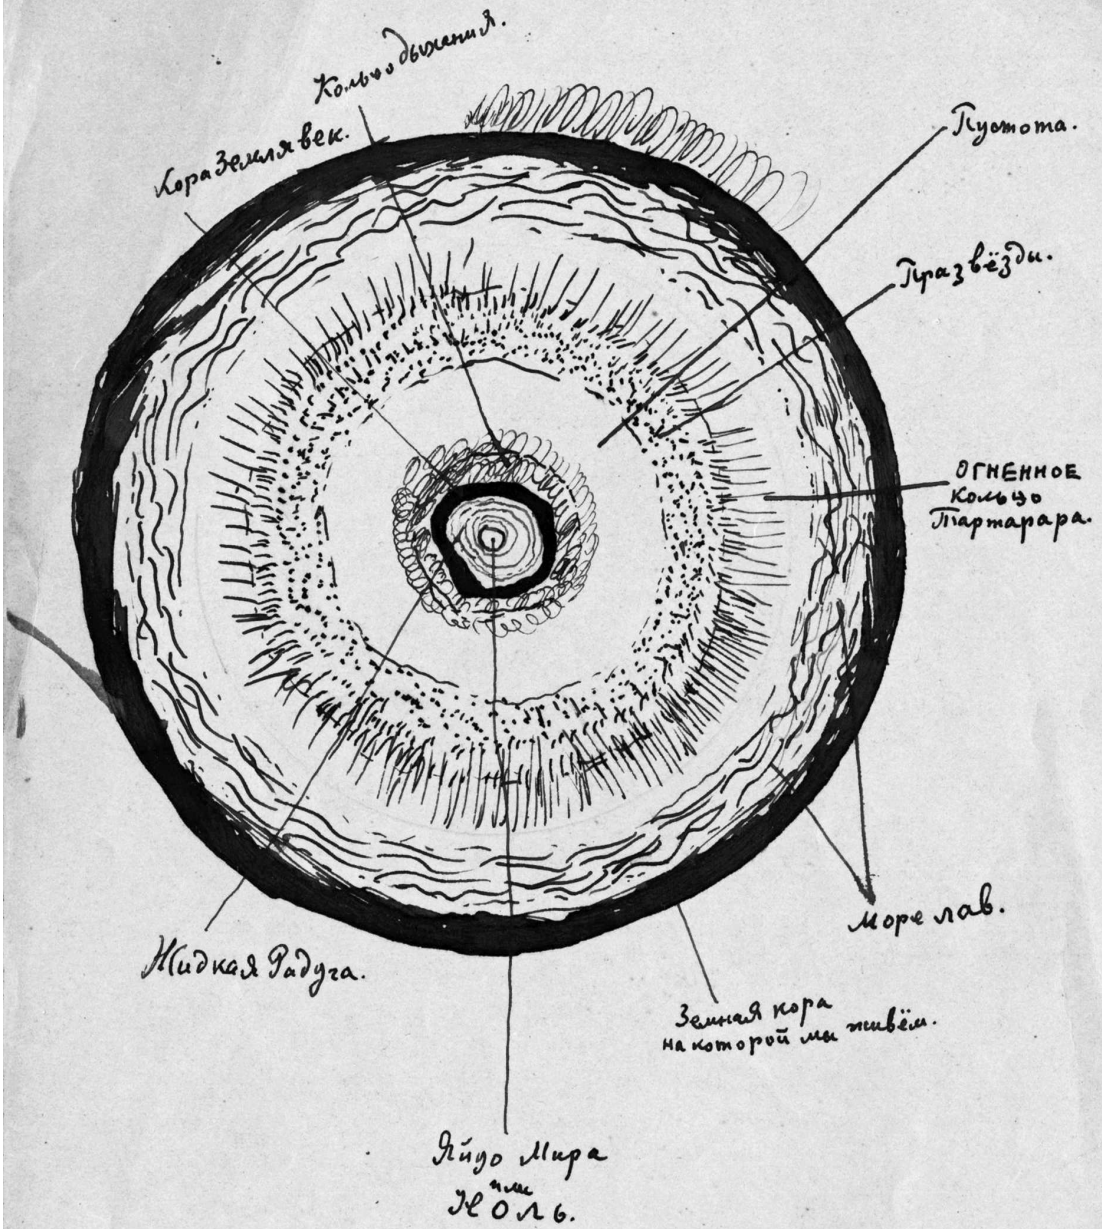 Кольцо дыхания.
Кора Землявек.
Пустота.
Празвёзды.
ОГНЕННОЕ
кольцо
Тартарара.
Море лав.
Жидкая Радуга.
Земная кора
на которой мы живём.
Яйцо Мира
или
НОЛЬ.